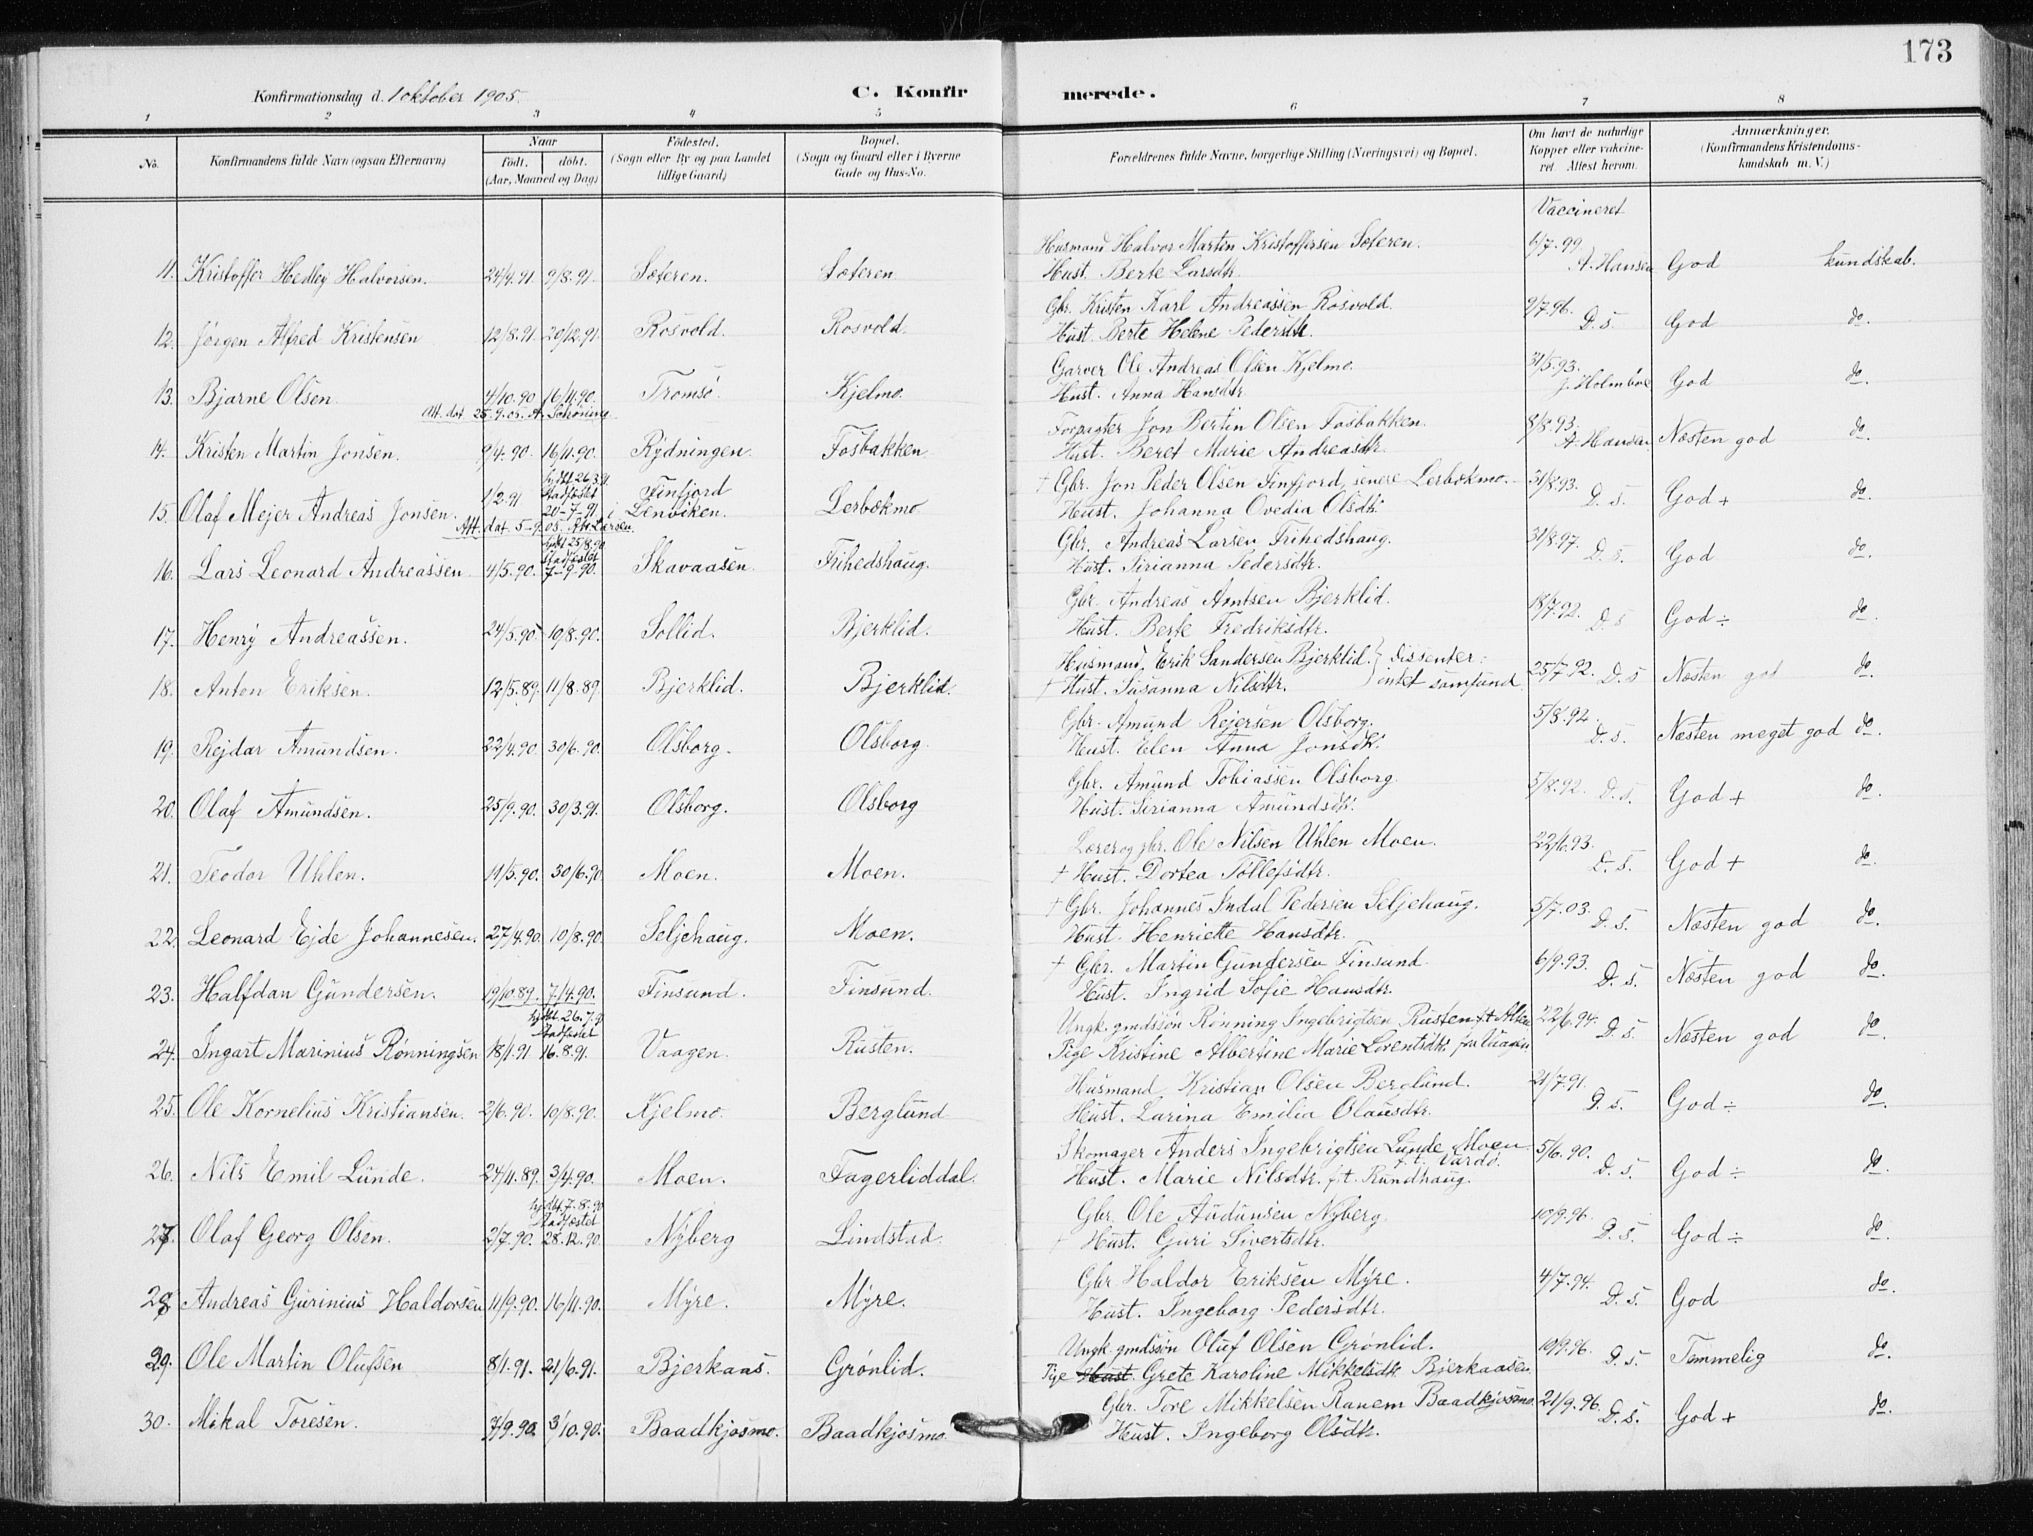 173
Konfirmationsdag d. 1 oktober 1905. C. Konfirmerede.
1 2 3 4 5 6 7 8
No. Konfirmandens fulde Navn (ogsaa Efternavn) Naar født. døbt. (Aar, Maaned og Dag) Fødested. (Sogn eller By og paa Landet tillige Gaard) Bopæl. (Sogn og Gaard eller i Byerne Gade og Hus-No. Forældrenes fulde Navne, borgerlige Stilling (Næringsvei) og Bopæl. Om havt de naturlige Kopper eller vakcineret. Attest herom. Anmærkninger. (Konfirmandens Kristendomskundskab m. V.)
Vaccineret
Husmand Halvor Martin Kristoffersen Sæteren. 6/7.99
11. Kristoffer Hedley Halvorsen. 24/4.91. 9/8.91. Sæteren. Sæteren Hust. Berte Larsdtr. A. Hansen God kundskab.
Gbr. Kristen Karl Andreassen Rosvold. 9/7.96.
12. Jørgen Alfred Kristensen 12/8.91. 20/12.91. Rosvold. Rosvold. Hust. Berte Helene Pedersdtr. D. s. God do.
Garver Ole Andreas Olsen Kjelmo. 31/5.93.
13. Bjarne Olsen 4/10.90 16/11.90. Tromsø. Kjelmo. Hust. Anna Hansdtr. J. Holmboe God do.
Att. dat. 25.9.05. A. Schöning.
Forpagter Jon Bertin Olsen Fosbakken. 8/8.93.
14. Kristen Martin Jonsen. 9/4.90. 16/11.90. Rydningen. Fosbakken. Hust. Beret Marie Andreasdtr. A. Hansen Næsten god do.
hjdbt 26.3.91.
stadfæstet
† Gbr. Jon Peder Olsen Finfjord, senere Lerbækmo. 31/8.93.
15. Olaf Mejer Andreas Jonsen. 1/2.91 20-7-91 Finfjord i Lenviken. Lerbækmo Hust. Johanna Ovedia Olsdtr. D. s. God + do.
Att. dat. 5-9.05.
hjdbt 25/8.90
stadfæstet
Gbr. Andreas Larsen Frihedshaug. 31/8.97.
16. Lars Leonard Andreassen 4/5.90. 7-9-90. Skavaasen. Frihedshaug. Hust. Sirianna Pedersdtr. D. s. God do.
Gbr. Andreas Arntsen Bjerklid. 18/7.92.
17. Henry Andreassen. 24/5.90 10/8.90. Sollid. Bjerklid. Hust. Berte Fredriksdtr. D. s God ÷ do.
Husmand. Erik Sandersen Bjerklid. } Dissenter:
18. Anton Eriksen. 12/5.89. 11/8.89. Bjerklid. Bjerklid. † Hust. Susanna Nilsdtr. intet samfund. 25/7.92. D. s Næsten god do.
Gbr. Amund Rejersen Olsborg. 5/8.92.
19. Rejdar Amundsen. 22/4.90 30/6.90. Olsborg. Olsborg. Hust. Elen Anna Jonsdtr. D. s. Næsten meget god do.
Gbr. Amund Tobiassen Olsborg.
20. Olaf Amundsen. 25/9.90. 30/3.91. Olsborg. Olsborg Hust. Sirianna Amundsdtr. 5/8.92. D. s. God + do.
Lærer og gbr. Ole Nilsen Uhlen Moen. 22/6.93.
21. Teodor Uhlen. 11/5.90. 30/6.90 Moen. Moen. † Hust. Dortea Tollefsdtr. D. s. God + do.
† Gbr. Johannes Indal Pedersen Seljehaug. 5/7.03.
22. Leonard Ejde Johannesen. 27/4.90. 10/8.90. Seljehaug. Moen. Hust. Henriette Hansdtr. D. s. Næsten god do.
† Gbr. Martin Gundersen Finsund. 6/9.93.
23. Halfdan Gundersen. 19/10.89. 7/4.90. Finsund. Finsund. Hust. Ingrid Sofie Hansdtr. D. s. Næsten god do.
hjdbt. 26.7.91
stadfæstet
Ungk. gmdssøn Rønning Ingebrigtsen Rusten f.t. Alten 22/6.94.
24. Ingart Marinius Rønningsen 18/1.91 16.8.91. Vaagen. Rusten. Pige Kristine Albertine Marie Lorentsdtr. fra Vaagen D. s. Næsten god do.
Husmand Kristian Olsen Berglund. 21/7.91.
25. Ole Kornelius Kristiansen. 2/6.90. 10/8.90. Kjelmo. Berglund Hust. Larina Emilia Olausdtr. D. s. God ÷ do.
Skomager Anders Ingebrigtsen Lunde Moen f.t. Vardø. 5/6.90.
26. Nils Emil Lunde. 24/11.89. 3/4.90. Moen. Fagerliddal. Hust. Marie Nilsdtr. f.t. Rundhaug. D. s. God ÷ do.
hjdbt. 7.8.90
stadfæstet
Gbr. Ole Audunsen Nyberg. 10/9.96.
27. Olaf Georg Olsen. 2/7.90. 28.12.90. Nyberg Lindstad. † Hust. Guri Sivertsdtr. D. s. God ÷ do.
Gbr. Haldor Eriksen Myre. 4/7.94.
28. Andreas Gurinius Haldorsen 11/9.90. 16/11.90. Myre. Myre. Hust. Ingeborg Pedersdtr. D. s. God do.
Ungk. gmdssøn Oluf Olsen Grønlid. 10/9.96.
29. Ole Martin Olufsen 8/1.91. 21/6.91. Bjerkaas. Grønlid. Pige Hust. Grete Karoline Mikkelsdtr. Bjerkaasen. D. s. Temmelig do.
Gbr. Tore Mikkelsen Ranem Baadkjosmo. 21/9.96.
30. Mikal Toresen. 7/9.90. 3/10.90. Baadkjosmo. Baadkjosmo. Hust. Ingeborg Olsdtr. D. s. God + do.